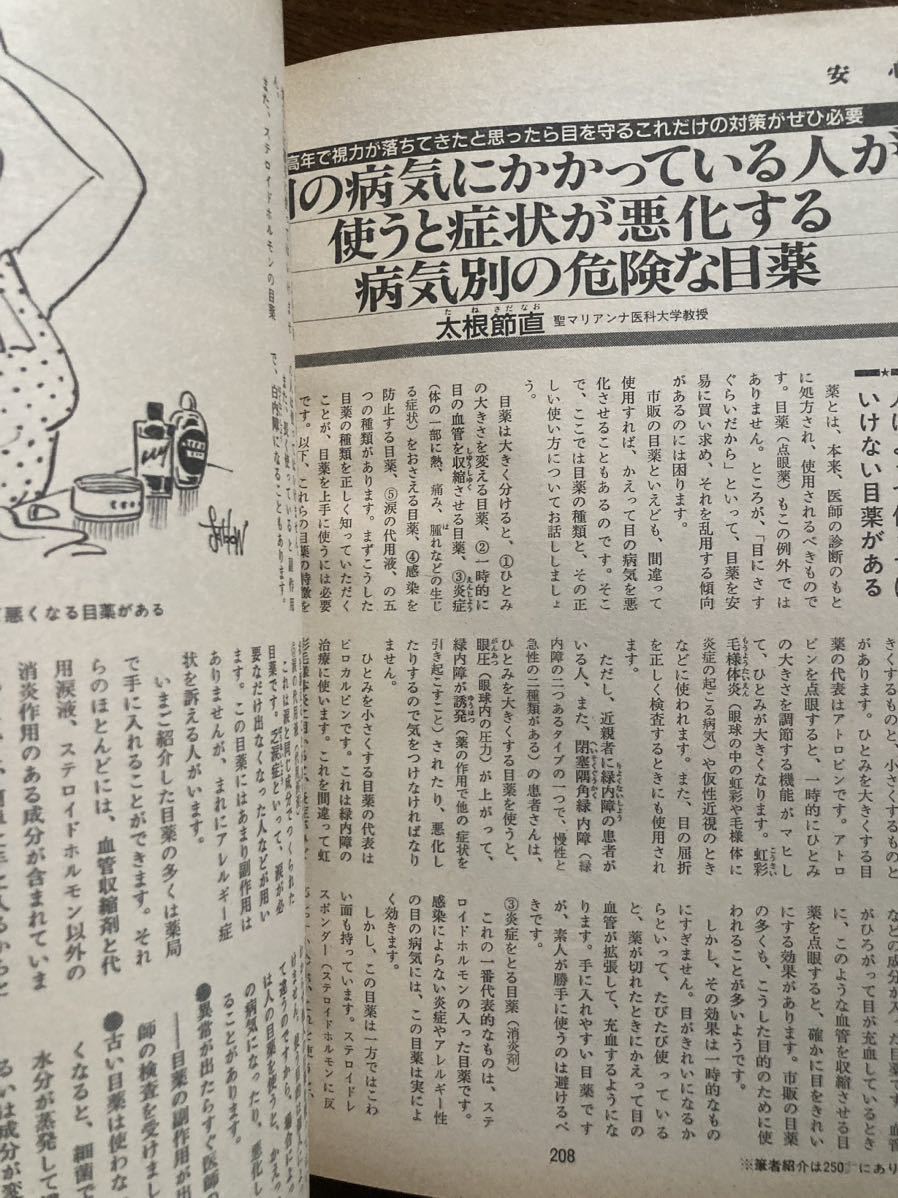 安心
高年で視力が落ちてきたと思ったら目を守るこれだけの対策がぜひ必要
の病気にかかっている人が
使うと症状が悪化する
病気別の危険な目薬
太根節直
た ね さだ なお
聖マリアンナ医科大学教授
いけない目薬がある
薬とは、本来、医師の診断のもと
に処方され、使用されるべきもので
す。目薬（点眼薬）もこの例外では
ありません。ところが、「目にさす
ぐらいだから」といって、目薬を安
易に買い求め、それを乱用する傾向
があるのには困ります。
市販の目薬といえども、間違って
使用すれば、かえって目の病気を悪
化させることもあるのです。そこ
で、ここでは目薬の種類と、その正
しい使い方についてお話ししましょ
う。
目薬は大きく分けると、①ひとみ
の大きさを変える目薬、②一時的に
目の血管を収縮させる目薬、③炎症
（体の一部に熱、痛み、腫れなどの生じ
る症状）をおさえる目薬、④感染を
防止する目薬、⑤涙の代用液、の五
つの種類があります。まずこうした
目薬の種類を正しく知っていただく
ことが、目薬を上手に使うには必要
です。以下、これらの目薬の特徴を
きくするものと、小さくするものと
があります。ひとみを大きくする目
薬の代表はアトロピンです。アトロ
ピンを点眼すると、一時的にひとみ
の大きさを調節する機能がマヒし
て、ひとみが大きくなります。虹彩
毛様体炎（眼球の中の虹彩や毛様体に
炎症の起こる病気）や仮性近視のとき
などに使われます。また、目の屈折
を正しく検査するときにも使用され
ます。
ただし、近親者に緑内障の患者が
いる人、また、閉塞隅角緑内障（緑
内障の二つあるタイプの一つで、慢性と
急性の二種類がある）の患者さんは、
ひとみを大きくする目薬を使うと、
眼圧（眼球内の圧力）が上がって、
緑内障が誘発（薬の作用で他の症状を
引き起こすこと）されたり、悪化し
たりするので気をつけなければなり
ません。
ひとみを小さくする目薬の代表は
ピロカルピンです。これは緑内障の
治療に使います。これを間違って虹
などの成分が入った目薬です。血管
がひろがって目が充血しているとき
に、このような血管を収縮させる目
薬を点眼すると、確かに目をきれい
にする効果があります。市販の目薬
の多くも、こうした目的のために使
われることが多いようです。
しかし、その効果は一時的なもの
にすぎません。目がきれいになるか
らといって、たびたび使っている
と、薬が切れたときにかえって目の
血管が拡張して、充血するようにな
ります。手に入れやすい目薬です
が、素人が勝手に使うのは避けるべ
きです。
③炎症をとる目薬（消炎剤）
これの一番代表的なものは、ステ
ロイドホルモンの入った目薬です。
感染によらない炎症やアレルギー性
の目の病気には、この目薬は実によ
く効きます。
しかし、この目薬は一方ではこわ
い面も持っています。ステロイドレ
スポンダー（ステロイドホルモンに反
208
※筆者紹介は250 にあり
また、ステロイドホルモンの目薬
で、白内障になることもあります。
悪くなる目薬がある
これは涙と同じ成分でつくられた
目薬です。乏涙症といって、涙が必
要なだけ出なくなった人などが用い
ます。この目薬にはあまり副作用は
ありませんが、まれにアレルギー症
状を訴える人がいます。
いまご紹介した目薬の多くは薬局
で手に入れることができます。それ
らのほとんどには、血管収縮剤と代
用涙液、ステロイドホルモン以外の
消炎作用のある成分が含まれていま
て違うのですから、場合によっ
ては人の目薬を使うと、かえっ
の病気になったり、悪化し
ることがあります。
●異常が出たらすぐ医師の
――目薬の副作用が出
師の検査を受けまし
●古い目薬は使わな
くなると、細菌で
水分が蒸発して
るいは成分が変